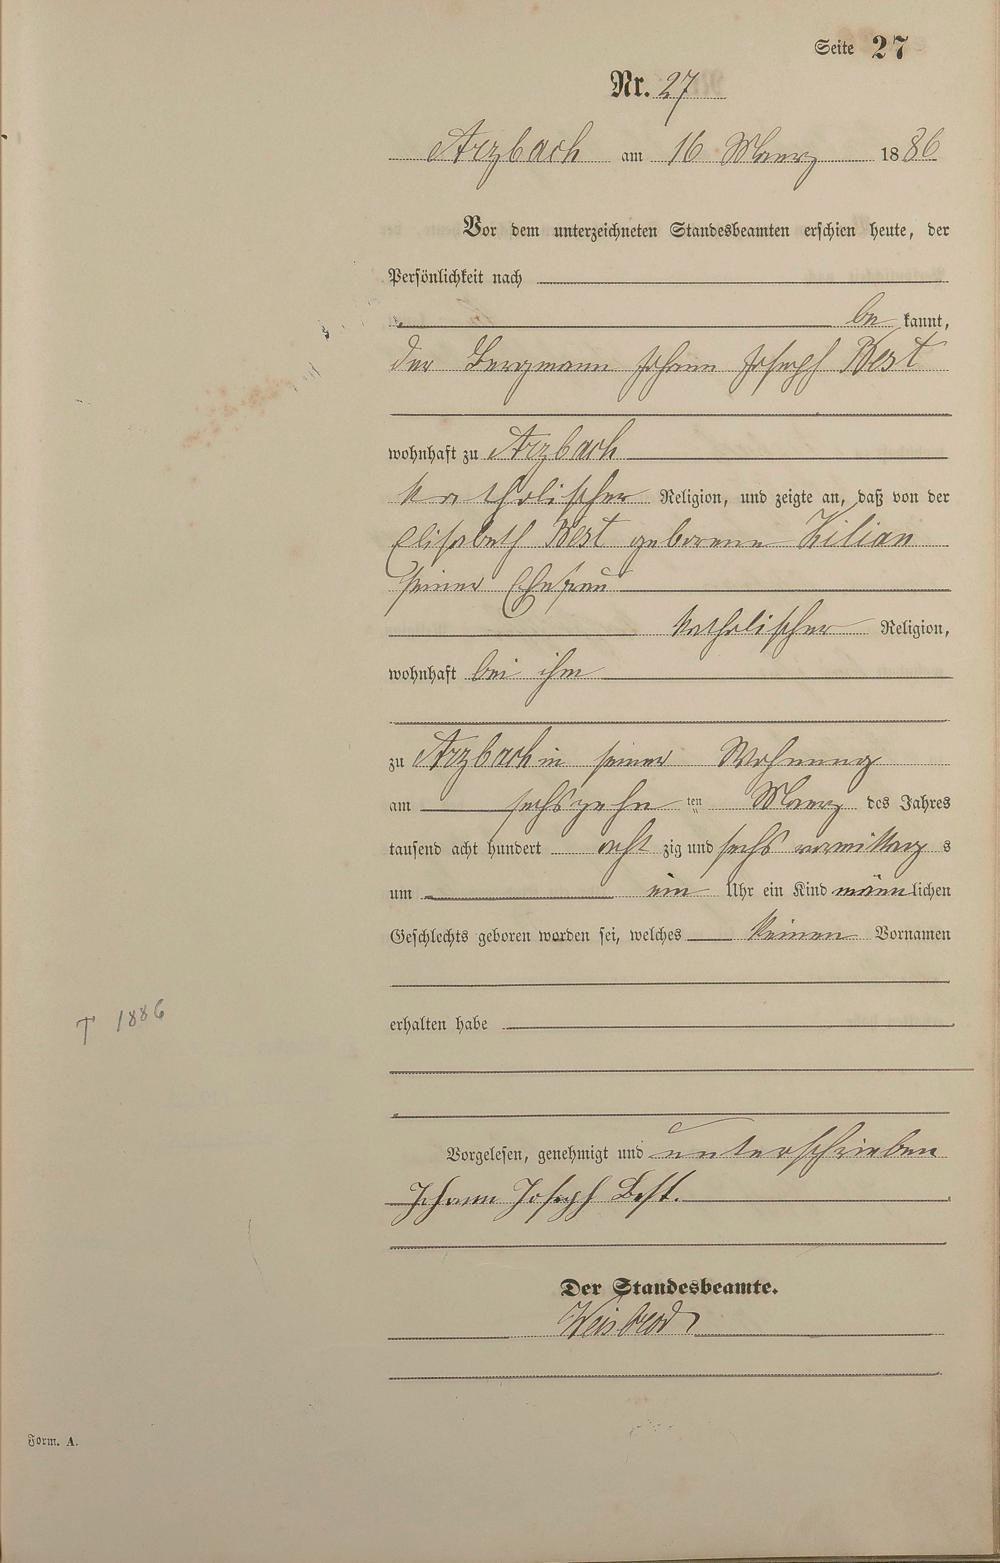 Seite 27
Nr. 27
Arzbach am 16 Maerz 1886
Vor dem unterzeichneten Standesbeamten erschien heute, der
Persönlichkeit nach
be kannt,
der Bergmann Johann Joseph Best
wohnhaft zu Arzbach
katholischer Religion, und zeigte an, daß von der
Elisabeth Best geborene Kilian
seiner Ehefrau
katholischer Religion,
wohnhaft bei ihm
zu Arzbach in seiner Wohnung
am sechszehn ten Maerz des Jahres
tausend acht hundert acht zig und sechs vormittag s
um ein Uhr ein Kind männlichen
Geschlechts geboren worden sei, welches keinen Vornamen
T 1886
erhalten habe
Vorgelesen, genehmigt und unterschrieben
Johann Joseph Best.
Der Standesbeamte.
Weisbrod
Form. A.